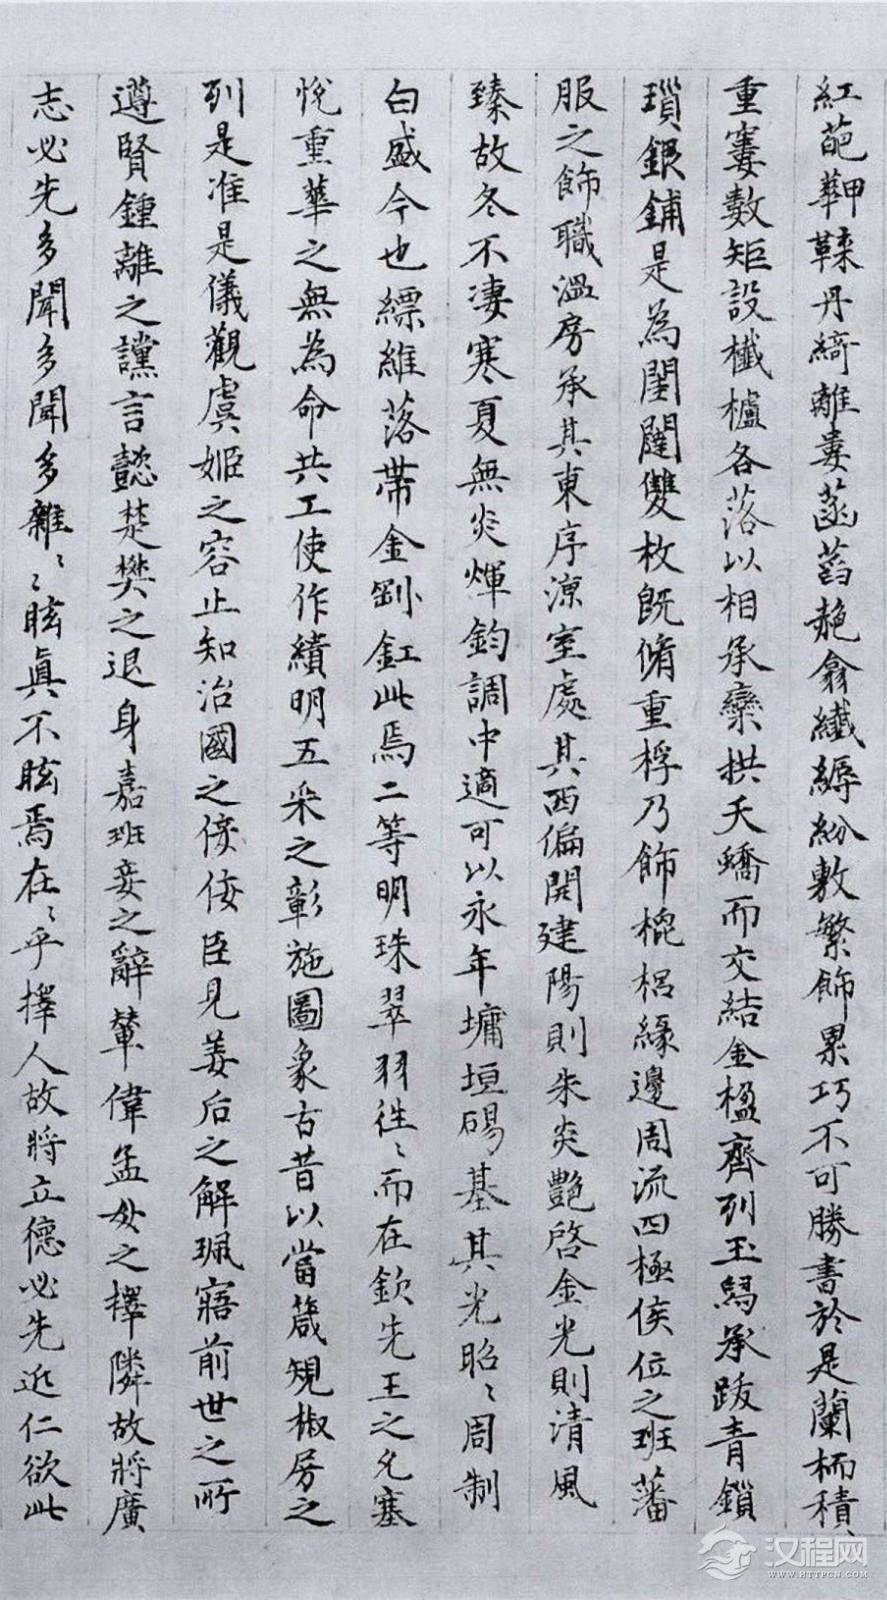 紅葩丹綺離婁菡萏赩翕纖縟紛敷繁飾累巧不可勝書於是蘭栭積〻
重窶數矩設櫼櫨各落以相承欒拱夭蟜而交結金楹齊列玉舄承跋青鎖
瑣銀鋪是為閨闥雙枚既脩重桴乃飾㮰梠緣邊周流四極侯位之班藩
服之飾職溫房承其東序涼室處其西偏開建陽則朱炎艷啓金光則清風
臻故冬不淒寒夏無炎煇鈞調中適可以永年墉垣碭基其光昭〻周制
白盛今也縹維落帶金釭此焉二等明珠翠羽往〻而在欽先王之允塞
悅重華之無為命共工使作繢明五采之彰施圖象古昔以當箴規椒房之
列是准是儀觀虞姬之容止知治國之佞佞臣見姜后之解珮寤前世之所
遵賢鍾離之讜言懿楚樊之退身嘉班妾之辭輦偉孟母之擇隣故將廣
志必先多聞多聞多雜〻眩真不眩焉在〻乎擇人故將立德必先近仁欲此
汉程网
WWW.HTTPCN.COM